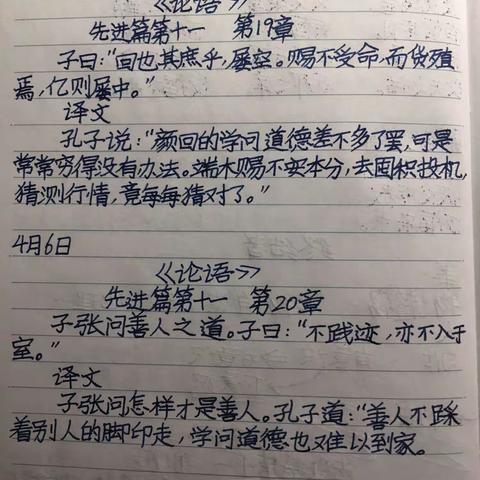 《论语》
先进篇第十一 第19章
子曰:“回也其庶乎,屡空。赐不受命,而货殖
焉,亿则屡中。”
译文
孔子说:“颜回的学问道德差不多了罢,可是
常常穷得没有办法。端木赐不安本分,去囤积投机,
猜测行情,竟每每猜对了。”
4月6日
《论语》
先进篇第十一 第20章
子张问善人之道。子曰:“不践迹,亦不入于
室。”
译文
子张问怎样才是善人。孔子道:“善人不踩
着别人的脚印走,学问道德也难以到家。